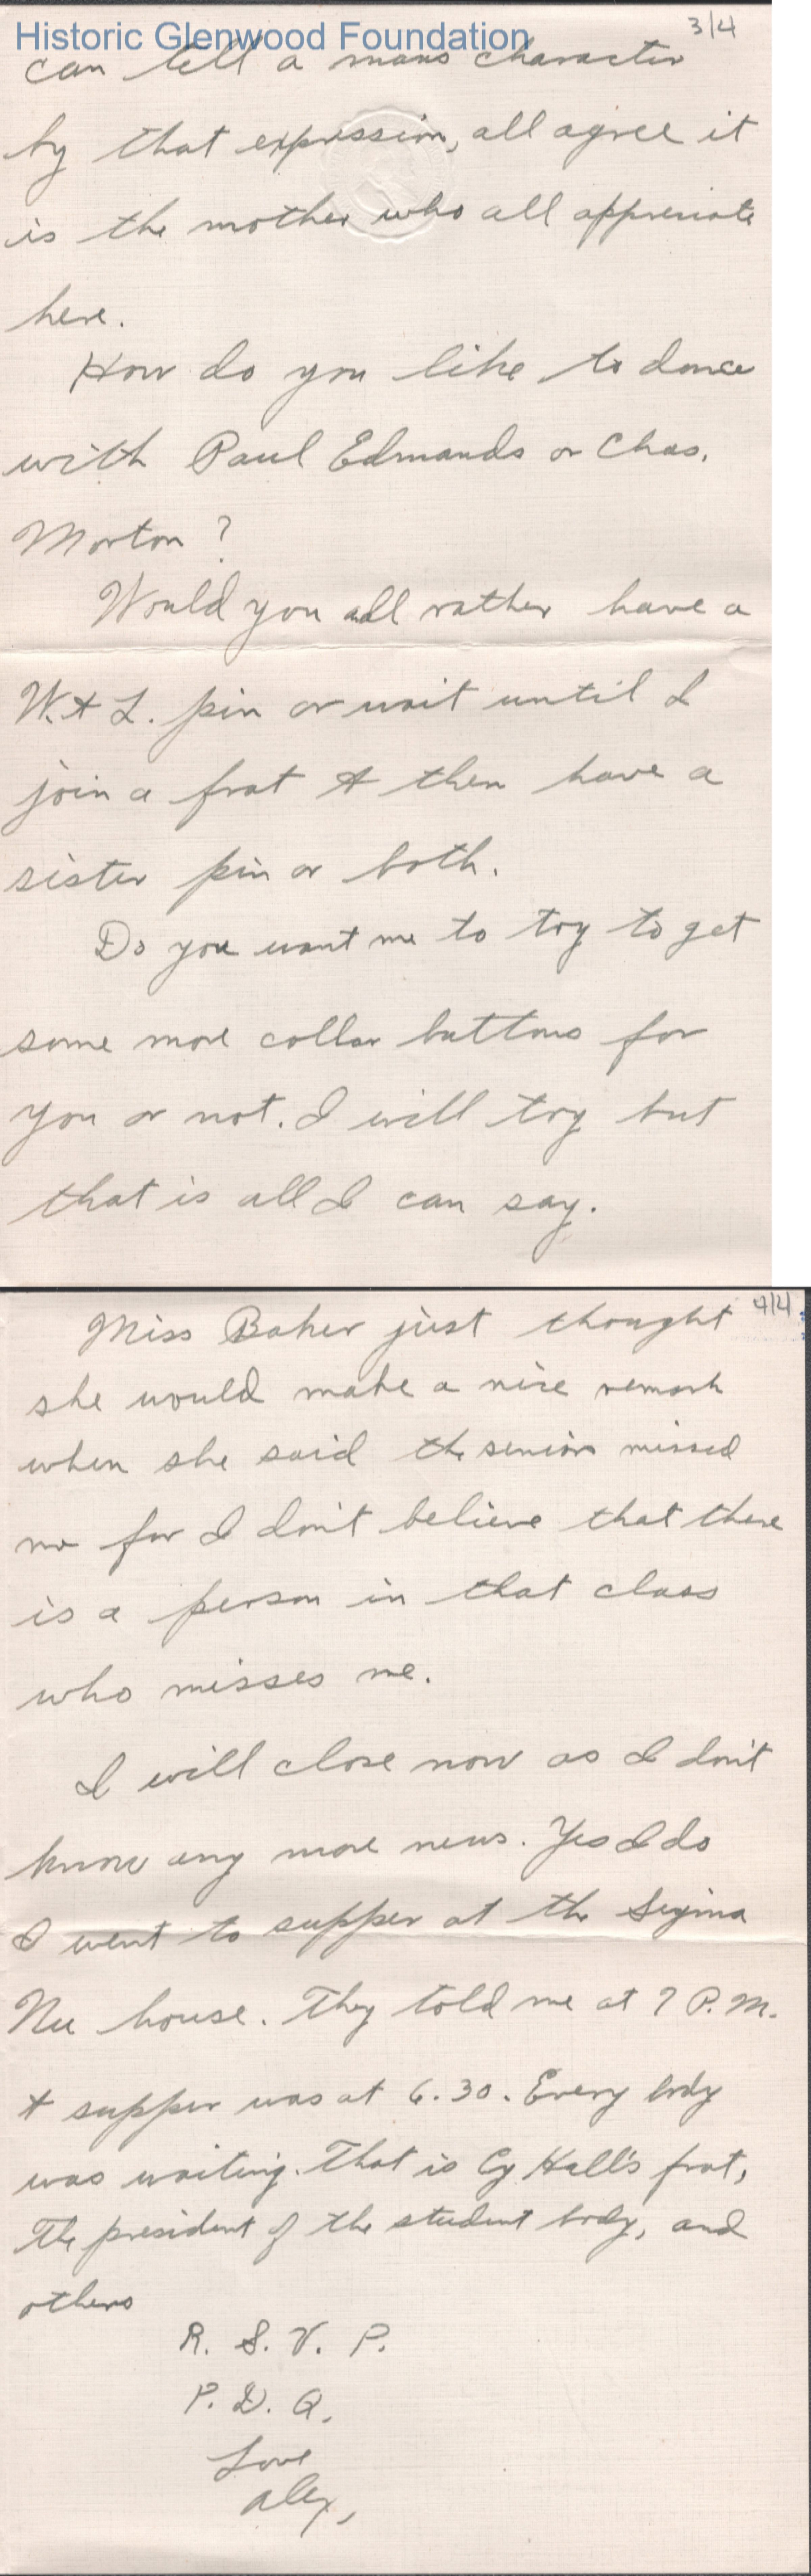 Historic Glenwood Foundation
3/4
can tell a mans character
by that expression, all agree it
is the mother who all appreciate
here.
How do you like to dance
with Paul Edmands or Chas.
Morton?
Would you all rather have a
W. & L. pin or wait until I
join a frat & then have a
sister pin or both.
Do you want me to try to get
some more collar buttons for
you or not. I will try but
that is all I can say.
4/4
Miss Baker just thought
she would make a nice remark
when she said the seniors missed
me for I don't believe that there
is a person in that class
who misses me.
I will close now as I don't
know any more news. Yes I do
I went to supper at the Sigma
Nu house. They told me at 7 P.M.
& supper was at 6.30. Every body
was waiting. That is Cy Hall's frat,
The president of the student body, and
others
R. S. V. P.
P. D. Q.
Love
Alex,